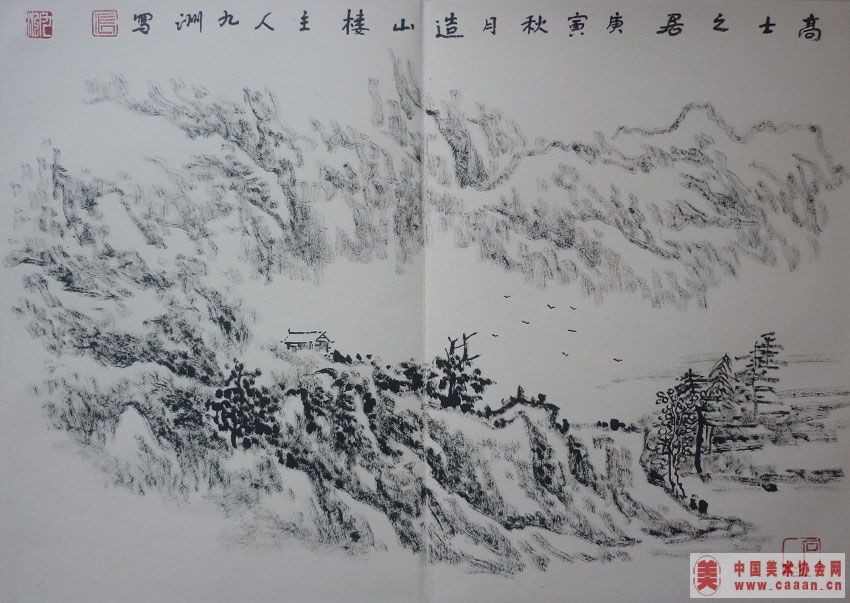 高士之居庚寅秋月造山樓主人九洲寫
美
中国美术协会网
www.caaan.cn